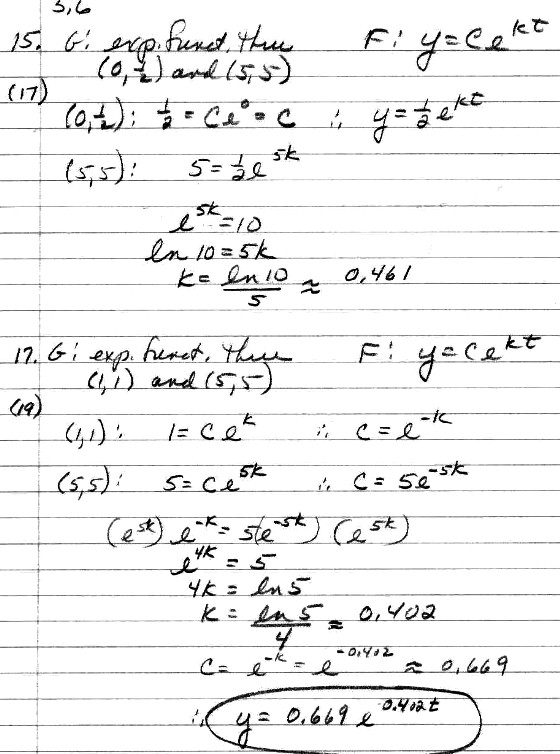 3,6
15. G: exp. funct. thru F: y = Ce^kt
(0,½) and (5,5)
(17)
(0,½): ½ = Ce^0 = C ∴ y = ½e^kt
(5,5): 5 = ½e^5k
e^5k = 10
ln 10 = 5k
k = ln 10 / 5 ≈ 0.461
17. G: exp. funct. thru F: y = Ce^kt
(1,1) and (5,5)
(19)
(1,1): 1 = Ce^k ∴ C = e^-k
(5,5): 5 = Ce^5k ∴ C = 5e^-5k
(e^5k) e^-k = 5(e^-5k) (e^5k)
e^4k = 5
4k = ln 5
k = ln 5 / 4 ≈ 0.402
C = e^-k = e^-0.402 ≈ 0.669
∴ y = 0.669 e^0.402t